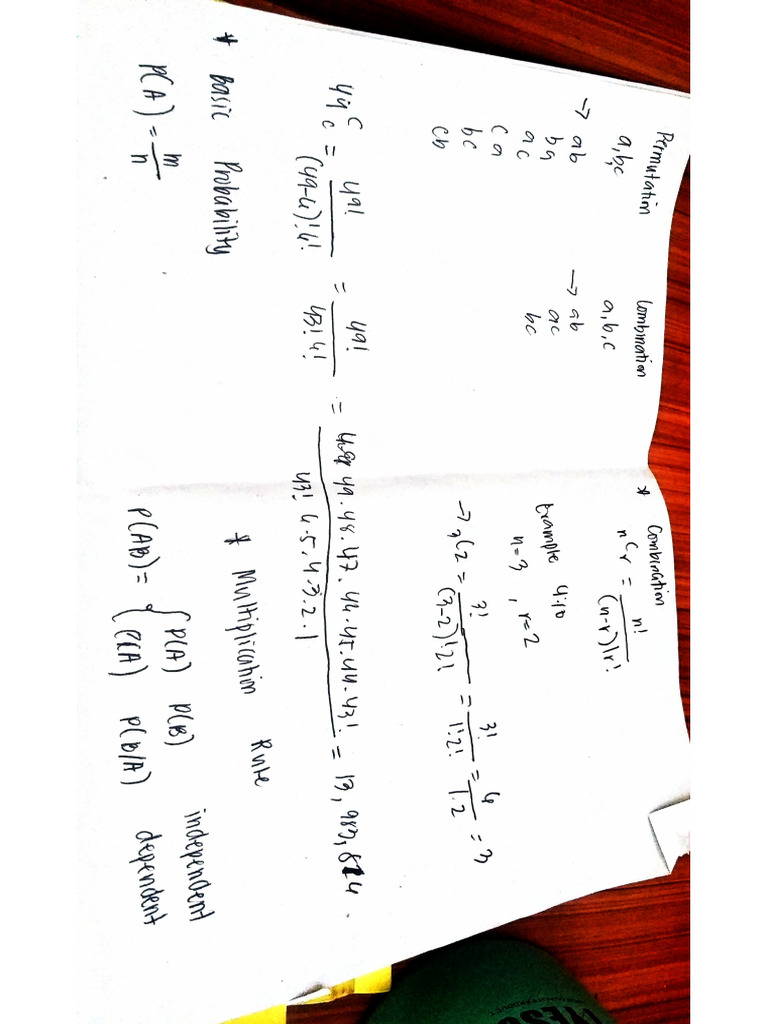 Permutation
a,b,c
→ ab
ba
ac
ca
bc
cb
Combination
a,b,c
→ ab
ac
bc
* Combination
nCr = n! / (n-r)!r!
Example 4.10
n=3 , r=2
→ 3C2 = 3! / (3-2)!2! = 3! / 1!2! = 6 / 1.2 = 3
49C6 = 49! / (49-6)!6! = 49! / 43!6! = 49.48.47.46.45.44.43! / 43! 6.5.4.3.2.1 = 13,983,824.
* Basic Probability
P(A) = m / n
* Multiplication Rule
P(AB) = { P(A) P(B) independent
P(A) P(B/A) dependent